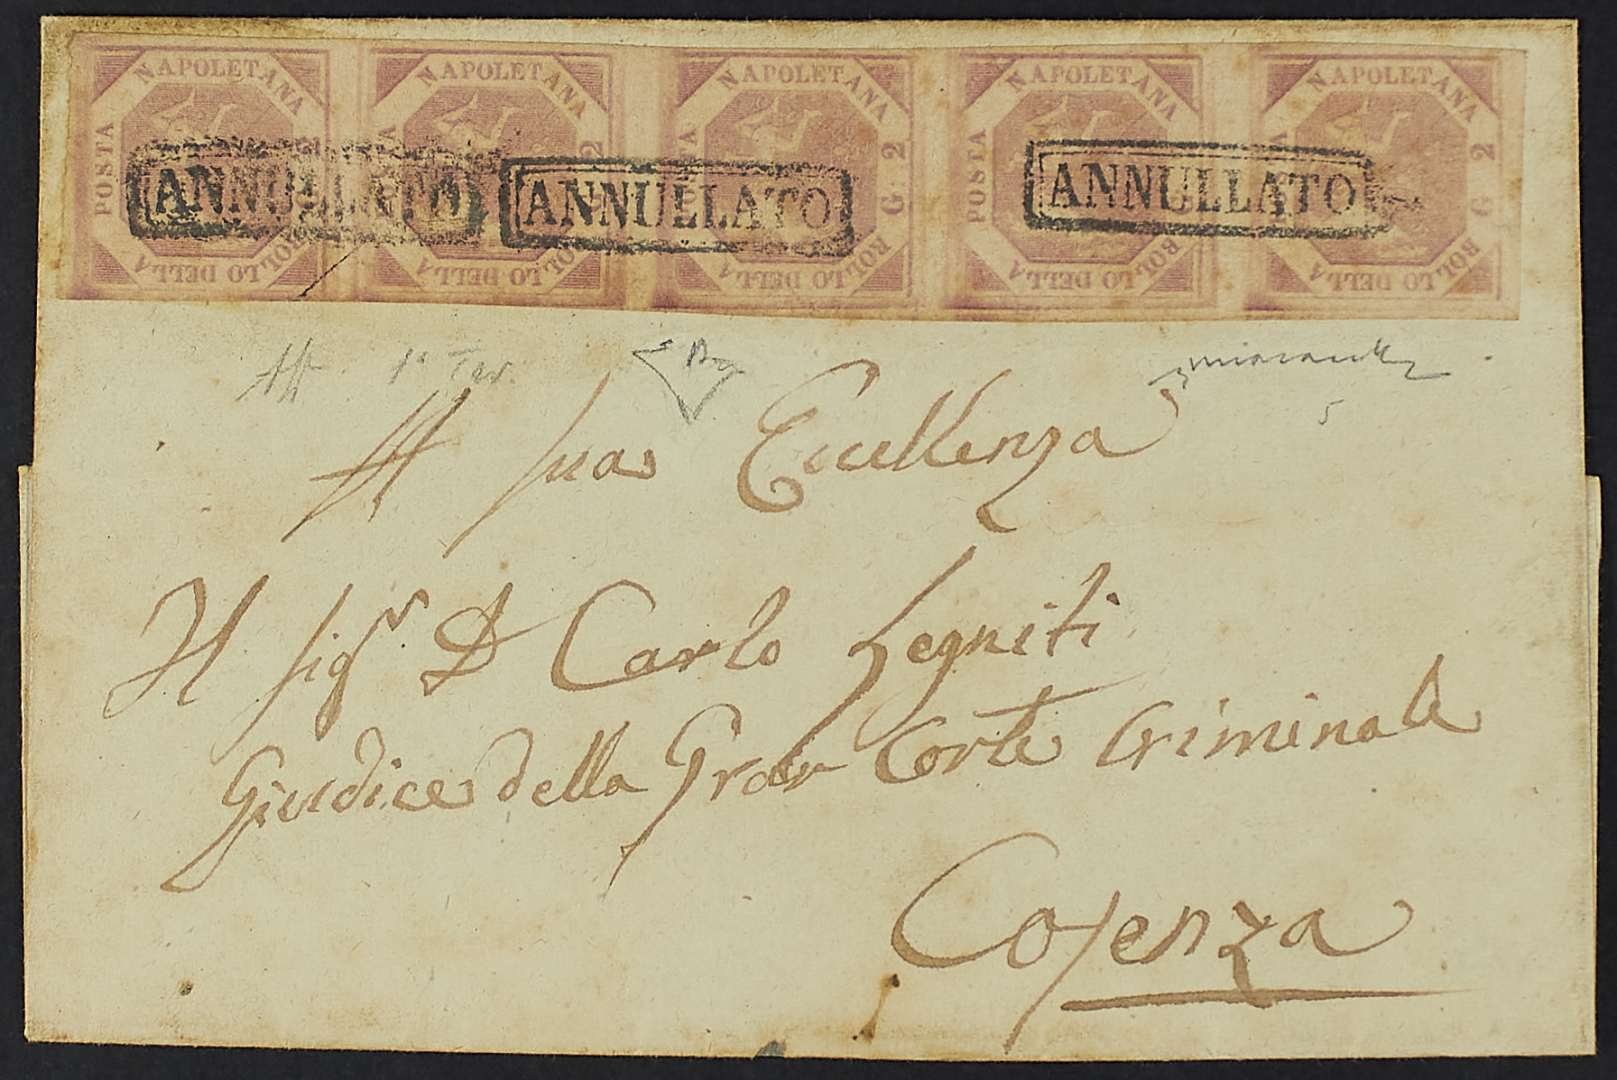 NAPOLETANA NAPOLETANA NAPOLETANA NAPOLETANA NAPOLETANA
POSTA G 2 POSTA G 2 POSTA G 2 POSTA G 2 POSTA G 2
BOLLO DELLA BOLLO DELLA BOLLO DELLA BOLLO DELLA BOLLO DELLA
ANNULLATO ANNULLATO ANNULLATO
1ª Tav
5
A sua Eccellenza
Il sigr D Carlo Segniti
Giudice della Gran Corte Criminale
Cosenza